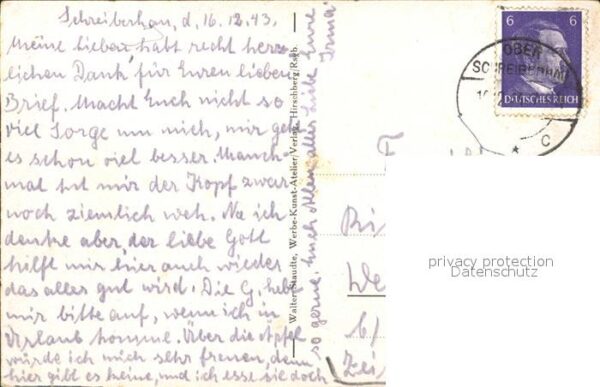 Schreiberhau, d. 16.12.43.
Meine Lieben, habt recht herz
lichen Dank für Euren lieben
Brief. Macht Euch nicht so
viel Sorge um mich, mir geht
es schon viel besser. Manch-
mal tut mir der Kopf zwar
noch ziemlich weh. Na ich
denke aber, der liebe Gott
hilft mir hier auch wieder
das alles gut wird. Die G. hebt
mir bitte auf, wenn ich in
Urlaub komme. Über die Äpfel
würde ich mich sehr freuen, denn
hier gibt es keine, und ich esse sie doch
so gerne. Euch Allen alles Gute Eure
Irma
Walter Staudte, Werbe-Kunst-Atelier, Verlag, Hirschberg/Rsgb.
6 6
OBER
SCHREIBERHAU
DEUTSCHES REICH
c
privacy protection
Datenschutz